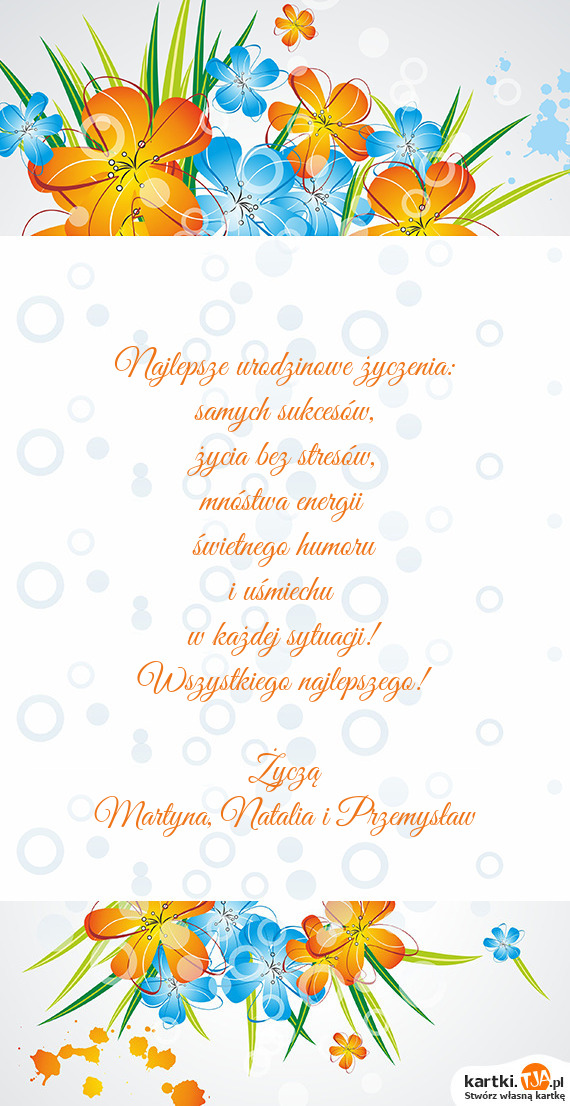 Najlepsze urodzinowe życzenia:
samych sukcesów,
życia bez stresów,
mnóstwa energii
świetnego humoru
i uśmiechu
w każdej sytuacji!
Wszystkiego najlepszego!
Życzą
Martyna, Natalia i Przemysław
kartki.TJA.pl
Stwórz własną kartkę